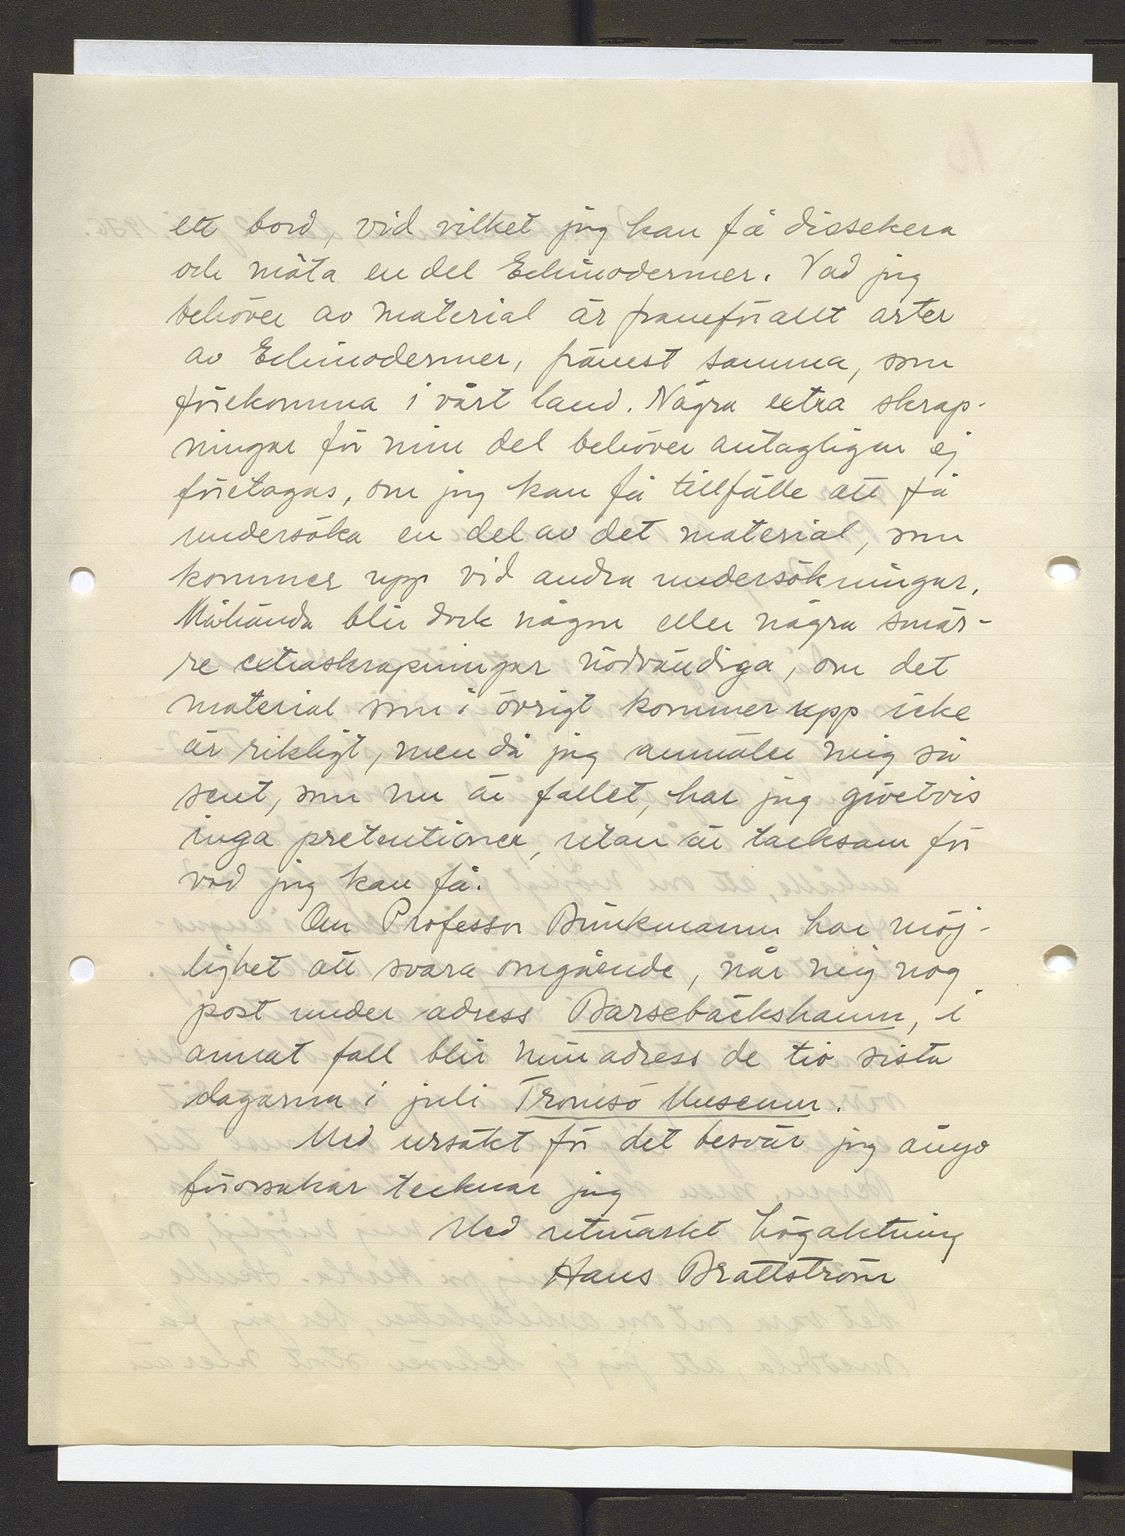 ett bord, vid vilket jag kan få dissekera
och mäta en del Echinodermer. Vad jag
behöver av material är framförallt arter
av Echinodermer, främst samma, som
förekomma i vårt land. Några extra skrap-
ningar för min del behöver antagligen ej
företagas, om jag kan få tillfälle att få
undersöka en del av det material, som
kommer upp vid andra undersökningar.
Måhända blir dock någon eller några smär-
re extraskrapningar nödvändiga, om det
material som i övrigt kommer upp icke
är rikligt, men då jag anmäler mig så
sent, som nu är fallet, har jag givetvis
inga pretentioner, utan är tacksam för
vad jag kan få.
Om Professor Brinkmann har möj-
lighet att svara omgående, når mig nog
post under adress Barsebäckshamn, i
annat fall blir min adress de tio sista
dagarna i juli Tromsö Museum.
Med ursäkt för det besvär jag ånyo
förorsakar tecknar jag
Med utmärkt högaktning
Hans Brattström